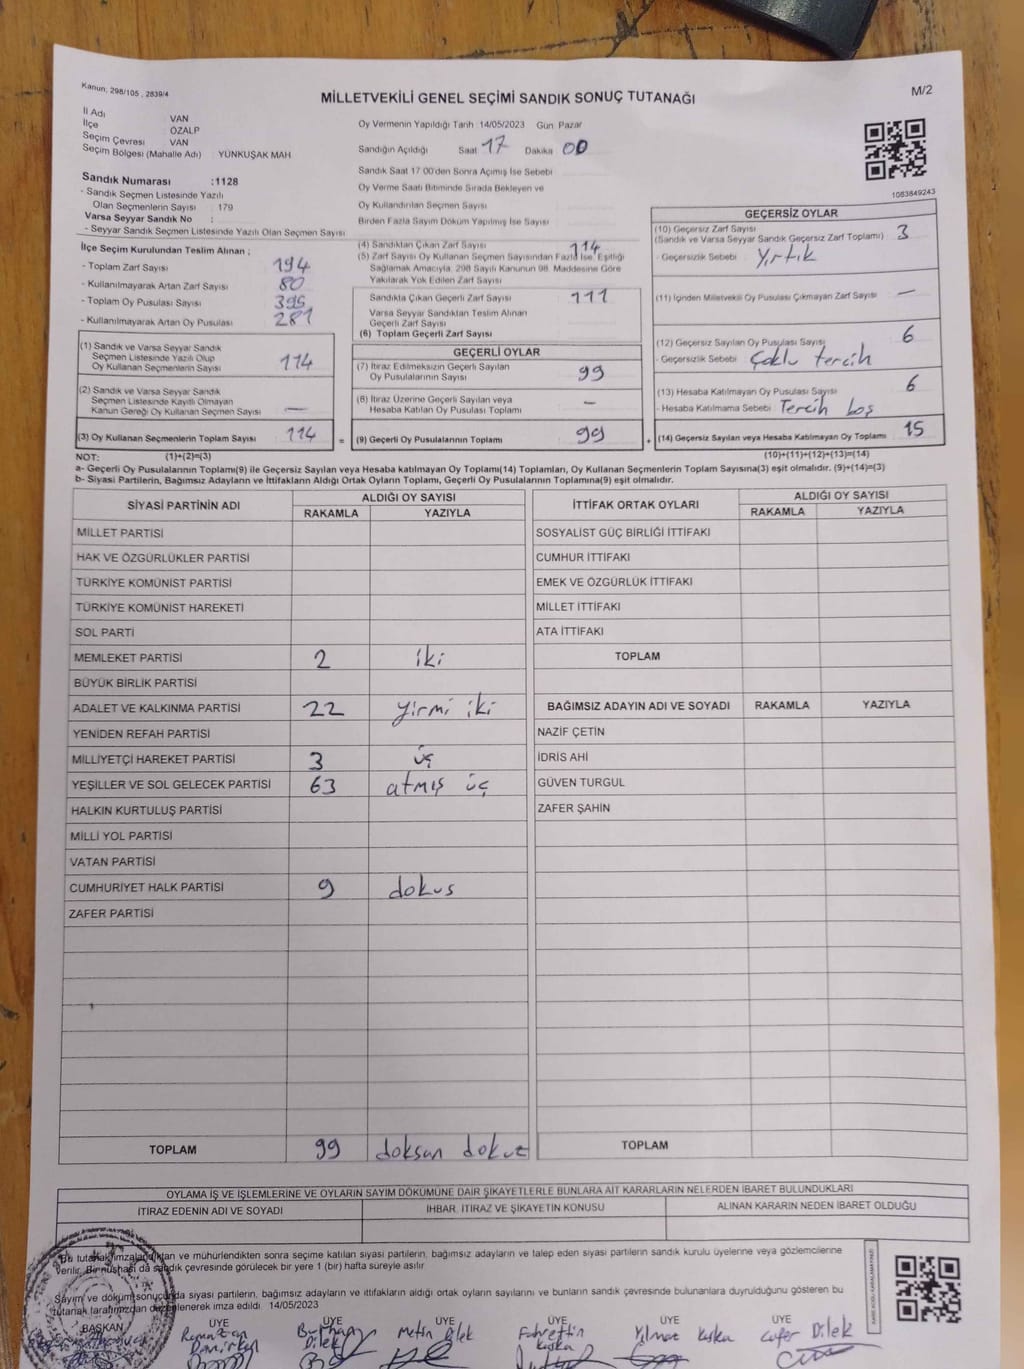 Kanun; 298/105 , 2839/4
MİLLETVEKİLİ GENEL SEÇİMİ SANDIK SONUÇ TUTANAĞI
M/2
İl Adı VAN
İlçe ÖZALP
Seçim Çevresi VAN
Seçim Bölgesi (Mahalle Adı) YUNKUŞAK MAH
Sandık Numarası :1128
- Sandık Seçmen Listesinde Yazılı
Olan Seçmenlerin Sayısı : 179
Varsa Seyyar Sandık No :
- Seyyar Sandık Seçmen Listesinde Yazılı Olan Seçmen Sayısı
Oy Vermenin Yapıldığı Tarih 14/05/2023 Gün Pazar
Sandığın Açıldığı Saat 17 Dakika 00
Sandık Saat 17 00'den Sonra Açımış İse Sebebi
Oy Verme Saati Bitiminde Sırada Bekleyen ve
Oy Kullandırılan Seçmen Sayısı
Birden Fazla Sayım Döküm Yapılmış İse Sayısı
1083849243
İlçe Seçim Kurulundan Teslim Alınan ;
- Toplam Zarf Sayısı 194
- Kullanılmayarak Artan Zarf Sayısı 80
- Toplam Oy Pusulası Sayısı 395
- Kullanılmayarak Artan Oy Pusulası 281
(1) Sandık ve Varsa Seyyar Sandık
Seçmen Listesinde Yazılı Olup
Oy Kullanan Seçmenlerin Sayısı 114
(2) Sandık ve Varsa Seyyar Sandık
Seçmen Listesinde Kayıtlı Olmayan
Kanun Gereği Oy Kullanan Seçmen Sayısı —
(3) Oy Kullanan Seçmenlerin Toplam Sayısı 114 =
(4) Sandıktan Çıkan Zarf Sayısı 114
(5) Zarf Sayısı Oy Kullanan Seçmen Sayısından Fazla İse, Eşitliği
Sağlamak Amacıyla, 298 Sayılı Kanunun 98. Maddesine Göre
Yakılarak Yok Edilen Zarf Sayısı
Sandıkta Çıkan Geçerli Zarf Sayısı 111
Varsa Seyyar Sandıktan Teslim Alınan
Geçerli Zarf Sayısı
(6) Toplam Geçerli Zarf Sayısı
GEÇERLİ OYLAR
(7) İtiraz Edilmeksizin Geçerli Sayılan
Oy Pusulalarının Sayısı 99
(8) İtiraz Üzerine Geçerli Sayılan veya
Hesaba Katılan Oy Pusulası Toplamı —
(9) Geçerli Oy Pusulalarının Toplamı 99 +
GEÇERSİZ OYLAR
(10) Geçersiz Zarf Sayısı
(Sandık ve Varsa Seyyar Sandık Geçersiz Zarf Toplamı) 3
- Geçersizlik Sebebi Yırtık
(11) İçinden Milletvekili Oy Pusulası Çıkmayan Zarf Sayısı —
(12) Geçersiz Sayılan Oy Pusulası Sayısı 6
- Geçersizlik Sebebi Çoklu tercih
(13) Hesaba Katılmayan Oy Pusulası Sayısı 6
- Hesaba Katılmama Sebebi Tercih boş
(14) Geçersiz Sayılan veya Hesaba Katılmayan Oy Toplamı 15
NOT: (1)+(2)=(3) (10)+(11)+(12)+(13)=(14)
a- Geçerli Oy Pusulalarının Toplamı(9) ile Geçersiz Sayılan veya Hesaba katılmayan Oy Toplamı(14) Toplamları, Oy Kullanan Seçmenlerin Toplam Sayısına(3) eşit olmalıdır. (9)+(14)=(3)
b- Siyasi Partilerin, Bağımsız Adayların ve İttifakların Aldığı Ortak Oyların Toplamı, Geçerli Oy Pusulalarının Toplamına(9) eşit olmalıdır.
SİYASİ PARTİNİN ADI ALDIĞI OY SAYISI
RAKAMLA YAZIYLA
MİLLET PARTİSİ
HAK VE ÖZGÜRLÜKLER PARTİSİ
TÜRKİYE KOMÜNİST PARTİSİ
TÜRKİYE KOMÜNİST HAREKETİ
SOL PARTİ
MEMLEKET PARTİSİ 2 iki
BÜYÜK BİRLİK PARTİSİ
ADALET VE KALKINMA PARTİSİ 22 yirmi iki
YENİDEN REFAH PARTİSİ
MİLLİYETÇİ HAREKET PARTİSİ 3 üç
YEŞİLLER VE SOL GELECEK PARTİSİ 63 atmış üç
HALKIN KURTULUŞ PARTİSİ
MİLLİ YOL PARTİSİ
VATAN PARTİSİ
CUMHURİYET HALK PARTİSİ 9 dokus
ZAFER PARTİSİ
TOPLAM 99 doksan dokuz
İTTİFAK ORTAK OYLARI ALDIĞI OY SAYISI
RAKAMLA YAZIYLA
SOSYALİST GÜÇ BİRLİĞİ İTTİFAKI
CUMHUR İTTİFAKI
EMEK VE ÖZGÜRLÜK İTTİFAKI
MİLLET İTTİFAKI
ATA İTTİFAKI
TOPLAM
BAĞIMSIZ ADAYIN ADI VE SOYADI RAKAMLA YAZIYLA
NAZİF ÇETİN
İDRİS AHİ
GÜVEN TURGUL
ZAFER ŞAHİN
TOPLAM
OYLAMA İŞ VE İŞLEMLERİNE VE OYLARIN SAYIM DÖKÜMÜNE DAİR ŞİKAYETLERLE BUNLARA AİT KARARLARIN NELERDEN İBARET BULUNDUKLARI
İTİRAZ EDENİN ADI VE SOYADI İHBAR, İTİRAZ VE ŞİKAYETİN KONUSU ALINAN KARARIN NEDEN İBARET OLDUĞU
Bu tutanak imzalandıktan ve mühürlendikten sonra seçime katılan siyasi partilerin, bağımsız adayların ve talep eden siyasi partilerin sandık kurulu üyelerine veya gözlemcilerine
verilir. Bir nüshası da sandık çevresinde görülecek bir yere 1 (bir) hafta süreyle asılır
Sayım ve döküm sonuçunda siyasi partilerin, bağımsız adayların ve ittifakların aldığı ortak oyların sayılarını ve bunların sandık çevresinde bulunanlara duyrulduğunu gösteren bu
tutanak tarafımızdan düzenlenerek imza edildi. 14/05/2023
BAŞKAN ÜYE ÜYE ÜYE ÜYE ÜYE ÜYE
Ramazan Demirkol
Burhan Dilek
Metin Dilek
Fahrettin Kuska
Yılmaz Kuska
Cafer Dilek